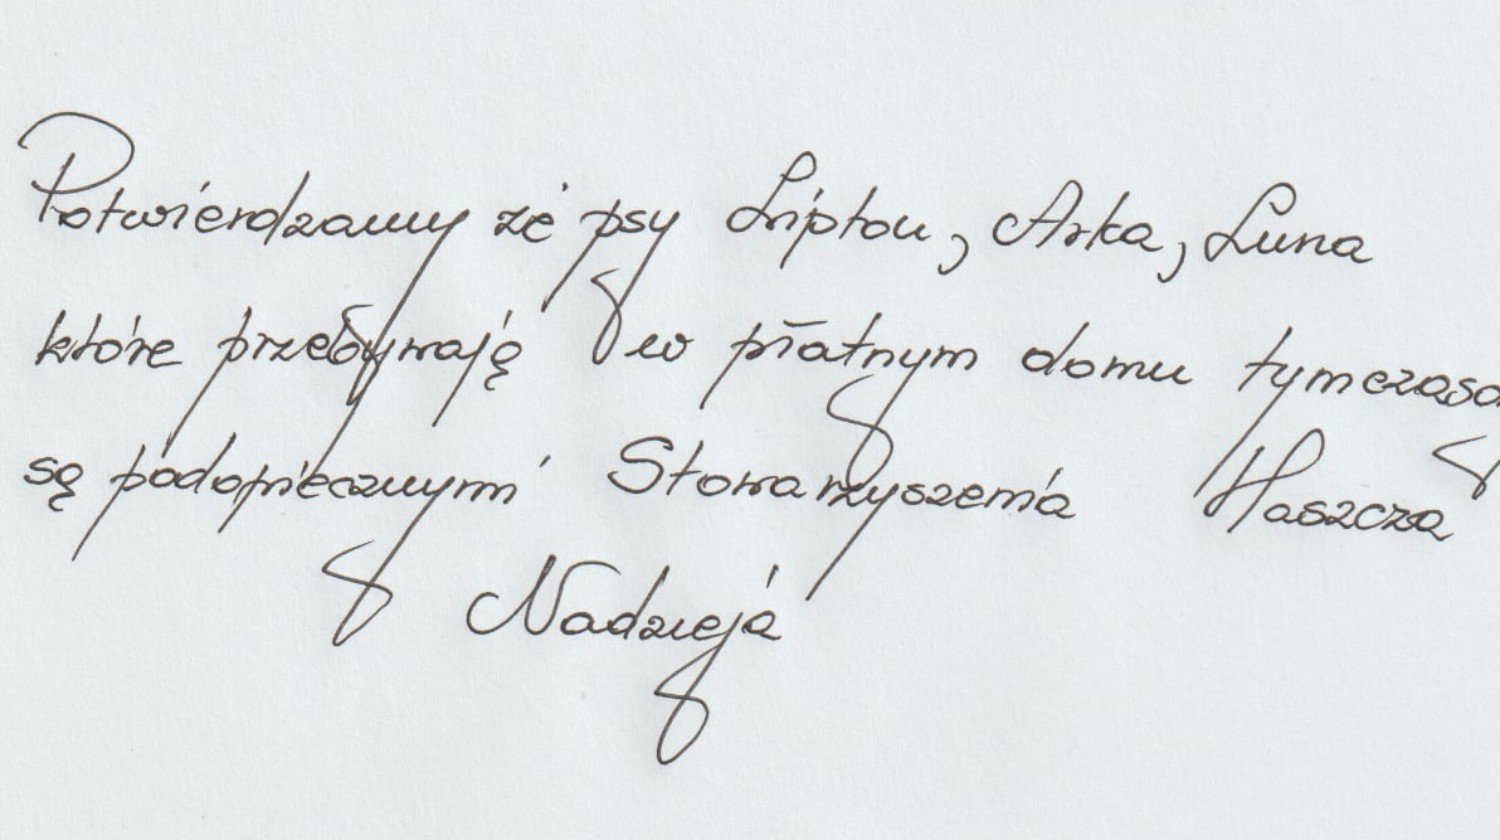 Potwierdzamy że psy Lipton, Arka, Luna
które przebywają w płatnym domu tymczaso
są podopiecznymi Stowarzyszenia Haszcza
Nadzieja